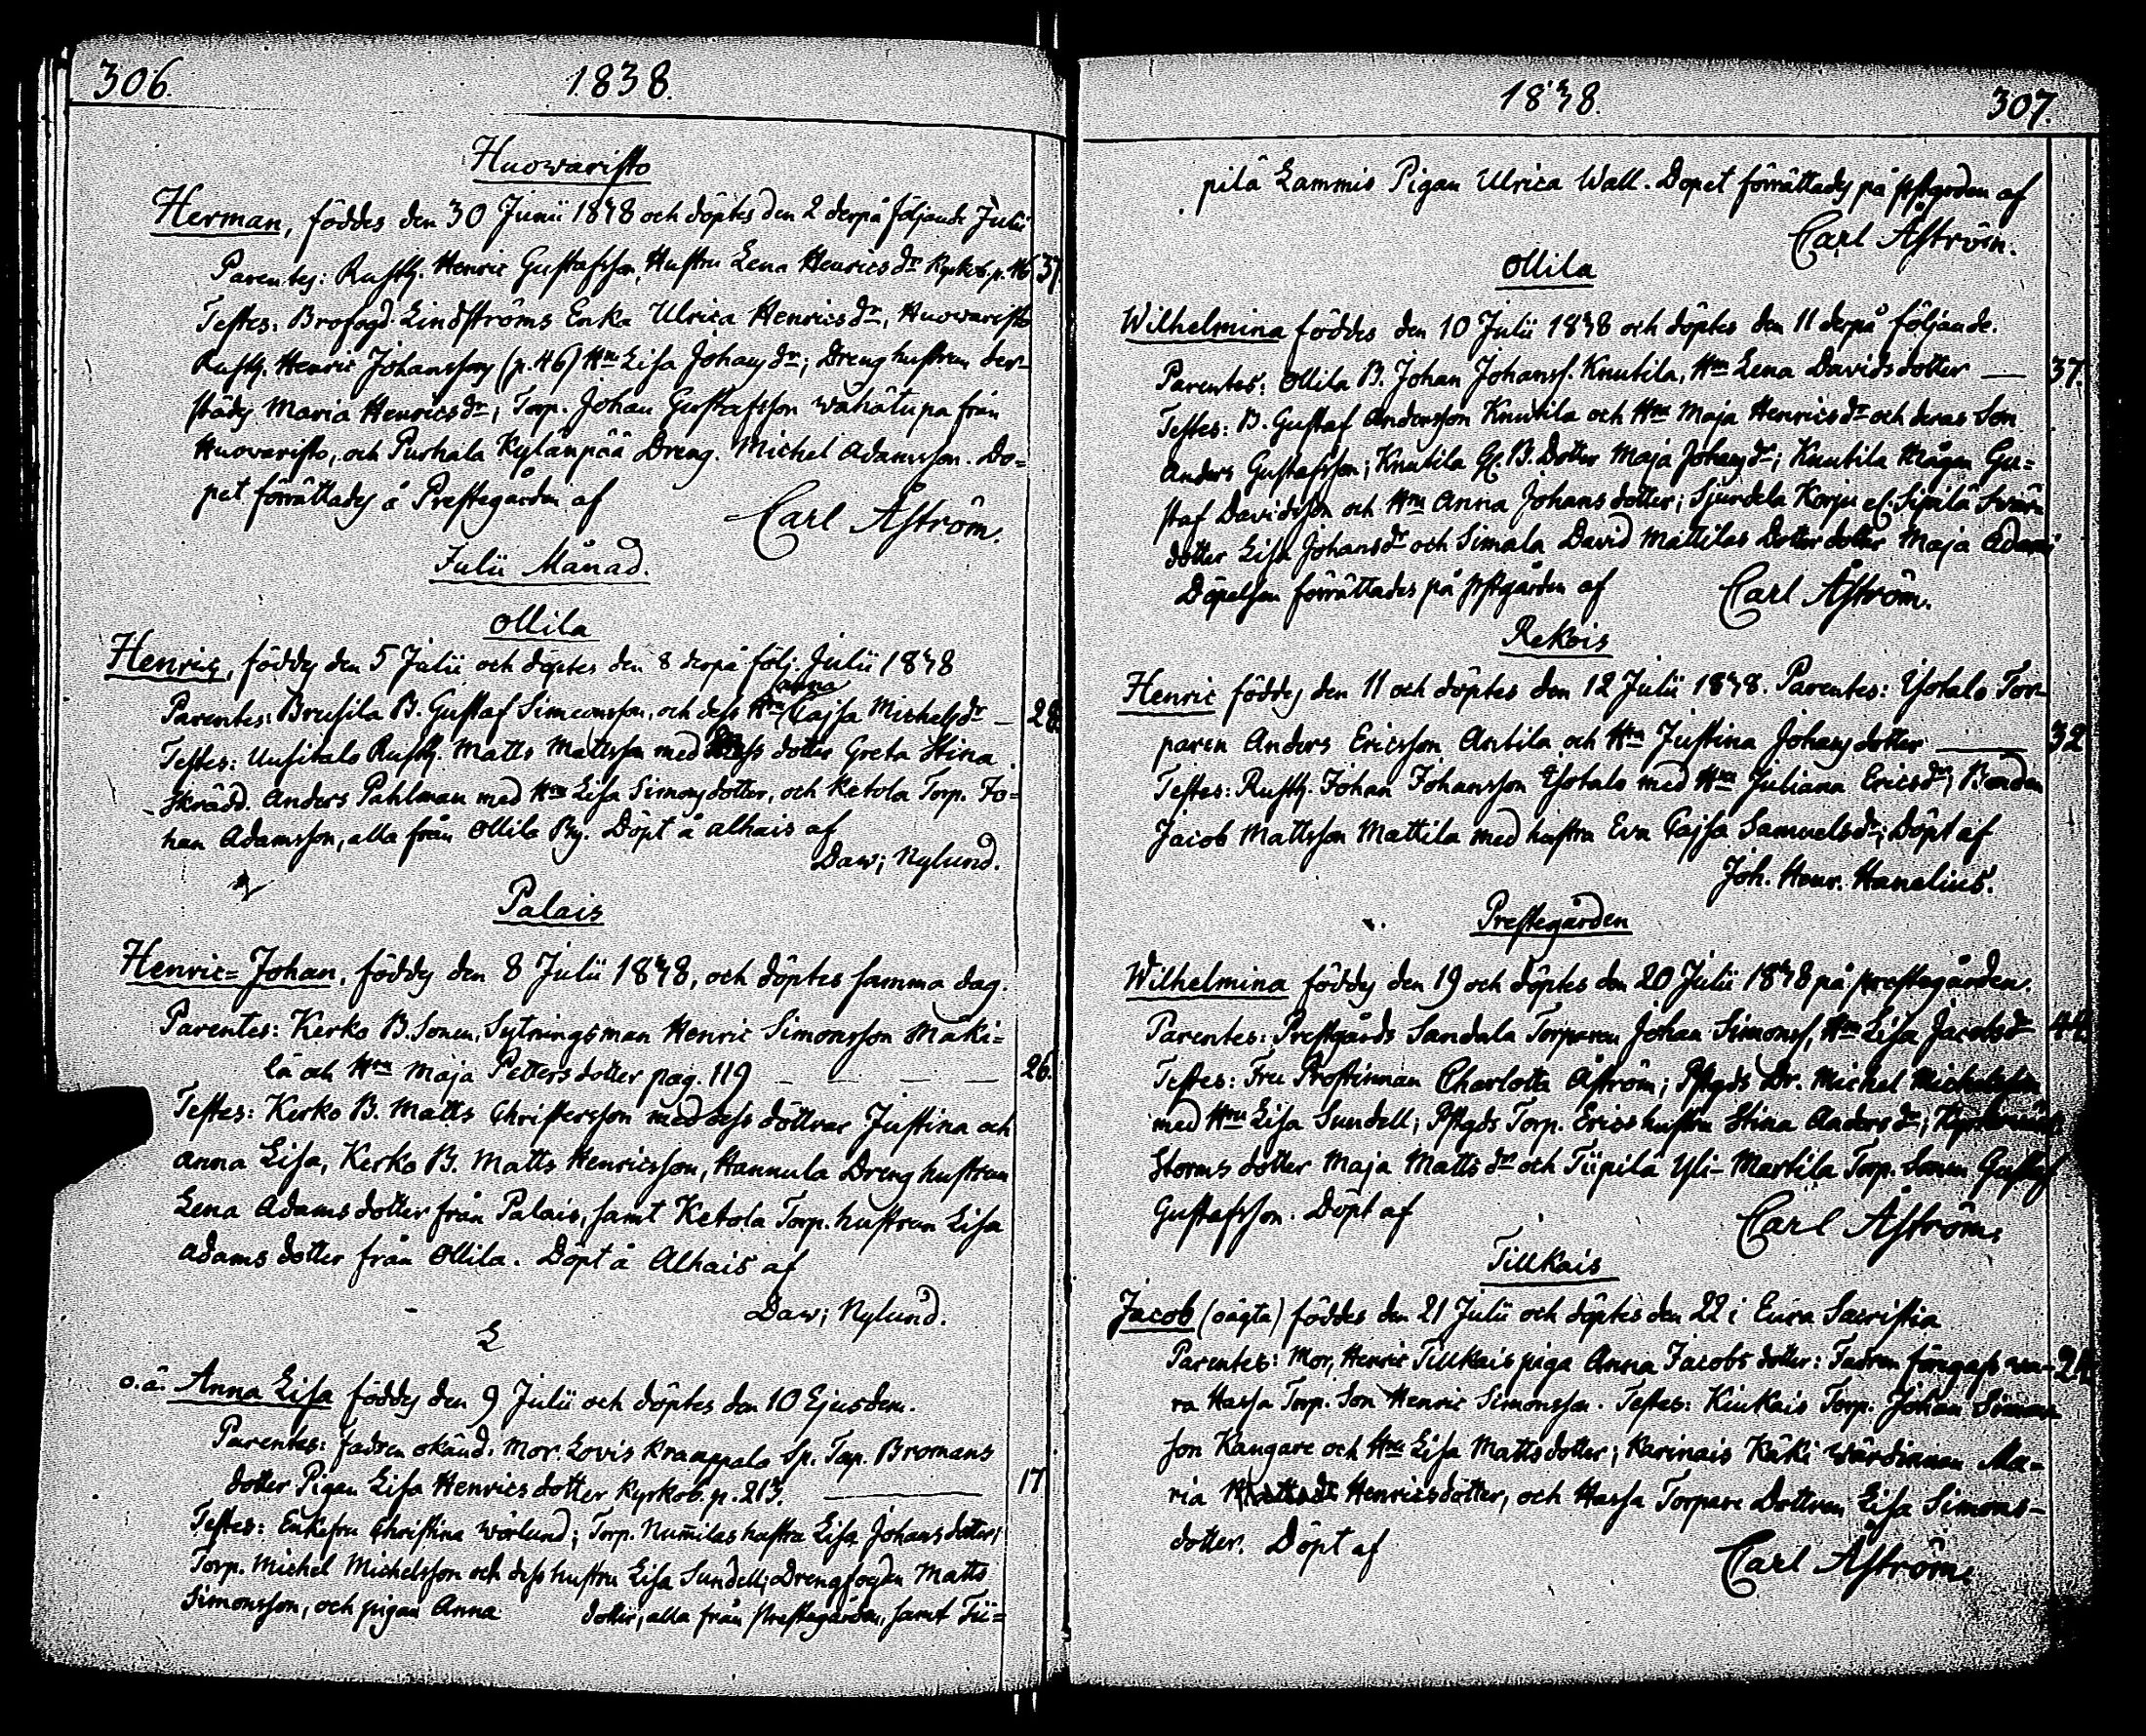 306.
1838.
Huowaristo
Herman, föddes den 30 Junii 1838 och döptes den 2 derpå följande Julii
Parentes: Rusth. Henric Gustafsson, Hustru Lena Henricsdr Kyrkob. p. 46 37
Testes: Brofogd. Lindströms Enka Ulrica Henricsdr, Huowaristo
Rusth. Henric Johanssons (p. 46) Hru Lisa Johansdr; Dreng hustrun der-
städes Maria Henricsdr; Torp. Johan Gustafsson Wähätupa från
Huowaristo, och Purhala Kylänpää Dreng. Michel Adamsson. Do=
pet förrättades å Prestegården af
Carl Åström.
Julii Månad.
Ollila
Henric,föddes den 5 Julii och döptes den 8 derpå följ. Julii 1838
Parentes: Brusila B. Gustaf Simeonsson, och dess Hru Cajsa Michelsdr — 28
Testes: Uusitalo Rusth. Matts Mattsson med dess dotter Greta Stina
Skrädd. Anders Pahlman med Hru Lisa Simonsdotter, och Ketola Torp. Jo=
han Adamsson, alla från Ollila By. Döpt å Alhais af
Daw; Nylund.
Palais
Henric=Johan, föddes den 8 Julii 1838, och döptes samma dag.
Parentes: Kerko B. Sonen, Sytningsman Henric Simonsson Mäki=
lä och Hru Maja Petters dotter pag. 119 — — — 26.
Testes: Kerko B. Matts Christersson med dess döttrar Justina och
Anna Lisa, Kerko B. Matts Henricsson, Hannula Dreng hustrun
Lena Adamsdotter från Palais, samt Ketola Torp. hustrun Lisa
Adams dotter från Ollila. Döpt å Alhais af
Daw; Nylund.
o.ä. Anna Lisa föddes den 9 Julii och döptes den 10 Ejusdem.
Parentes: fadren okänd: Mor: Lovis Kraappala Sp. Torp. Bromans
dotter Pigan Lisa Henrics dotter Kyrkob. p. 213. — 17
Testes: Enkefru Christina Wörlund; Torp. Numilas hustru Lisa Johans dotter;
Torp. Michel Michelsson och dess hustru Lisa Sundell; Drengfogden Matts
Simonsson, och pigan Anna dotter, alla från Prestegården, samt Tii=
1838.
307.
pilä Lammis Pigan Ulrica Wall. Dopet förrättades på pstgården af
Carl Åström.
Ollila
Wilhelmina föddes den 10 Julii 1838 och döptes den 11 derpå följande.
Parentes: Ollila B. Johan Johanss. Knutila, Hru Lena Davidsdotter — 37.
Testes: B. Gustaf Andersson Knutila och Hru Maja Henricsdr och deras Son
Anders Gustafsson; Knutila B. Dotter Maja Johansdr; Knutila Mågen Gu=
staf Davidsson och Hru Anna Johans dotter; Sjurdela Korju el. Sipilä Svär
dotter Lisa Johansdr och Simala David Mattilas Dotter dotter Maja Adams
Döpelsen förrättades på pstgården af
Carl Åström.
Rekois
Henric föddes den 11 och döptes den 12 Julii 1838. Parentes: Isotalo Tor-
paren Anders Ericsson Antila och Hru Justina Johans dotter — 32
Testes: Rusth. Johan Johansson Isotalo med Hru Juliana Ericsdr; Bonden
Jacob Mattsson Mattila med hustru Eva Cajsa Samuelsdr; Döpt af
Joh. Henr. Hanelius.
Prestegården
Wilhelmina föddes den 19 och döptes den 20 Julii 1838 på prestegården.
Parentes: Prestgårds Sandala Torparen Johan Simonss, Hru Lisa Jacobsdr 44
Testes: Fru Prostinnan Charlotta Åström; Pstgds Dr. Michel Michelsson
med Hru Lisa Sundell; Pstgds Torp. Erics hustru Stina Andersdr;
Storms dotter Maja Mattsdr och Tiipilä Yli-Martila Torp. Sonen Gustaf
Gustafsson. Döpt af
Carl Åström.
Tillkais
Jacob (oägta) föddes den 21 Julii och döptes den 22 i Eura Sacristia
Parentes: Mor, Henric Tillkais piga Anna Jacobs dotter: Fadren föregafs wa- 24
ra Hassa Torp. Son Henric Simonsson. Testes: Kiukais Torp. Johan Simons
son Kangare och Hru Lisa Mattsdotter; Karinais Käki wärdinnan Ma=
ria Henricsdotter, och Hassa Torpare Dottren Lisa Simons-
dotter. Döpt af
Carl Åström.